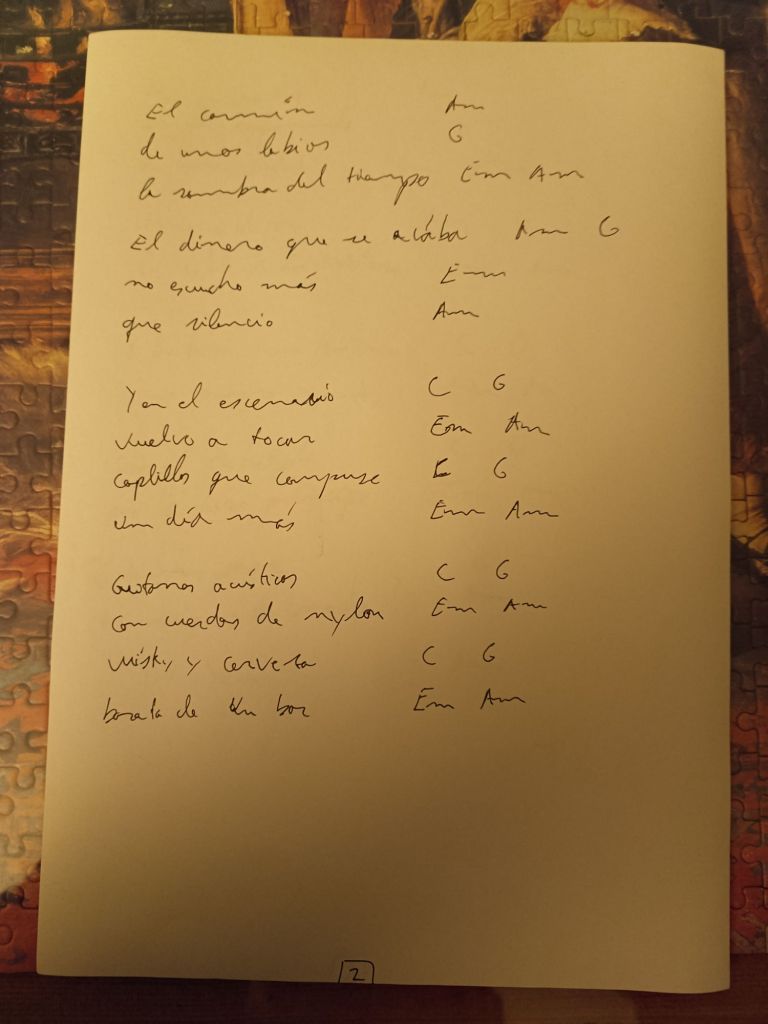 El carmín Am
de unos labios G
la sombra del tiempo Em Am
El dinero que se acaba Am G
no escucho más Em
que silencio Am
Y en el escenario C G
vuelvo a tocar Em Am
que compuse C G
un día más Em Am
Guitarras acústicas C G
con cuerdas de nylon Em Am
whisky y cerveza C G
barata de un bar Em Am
2